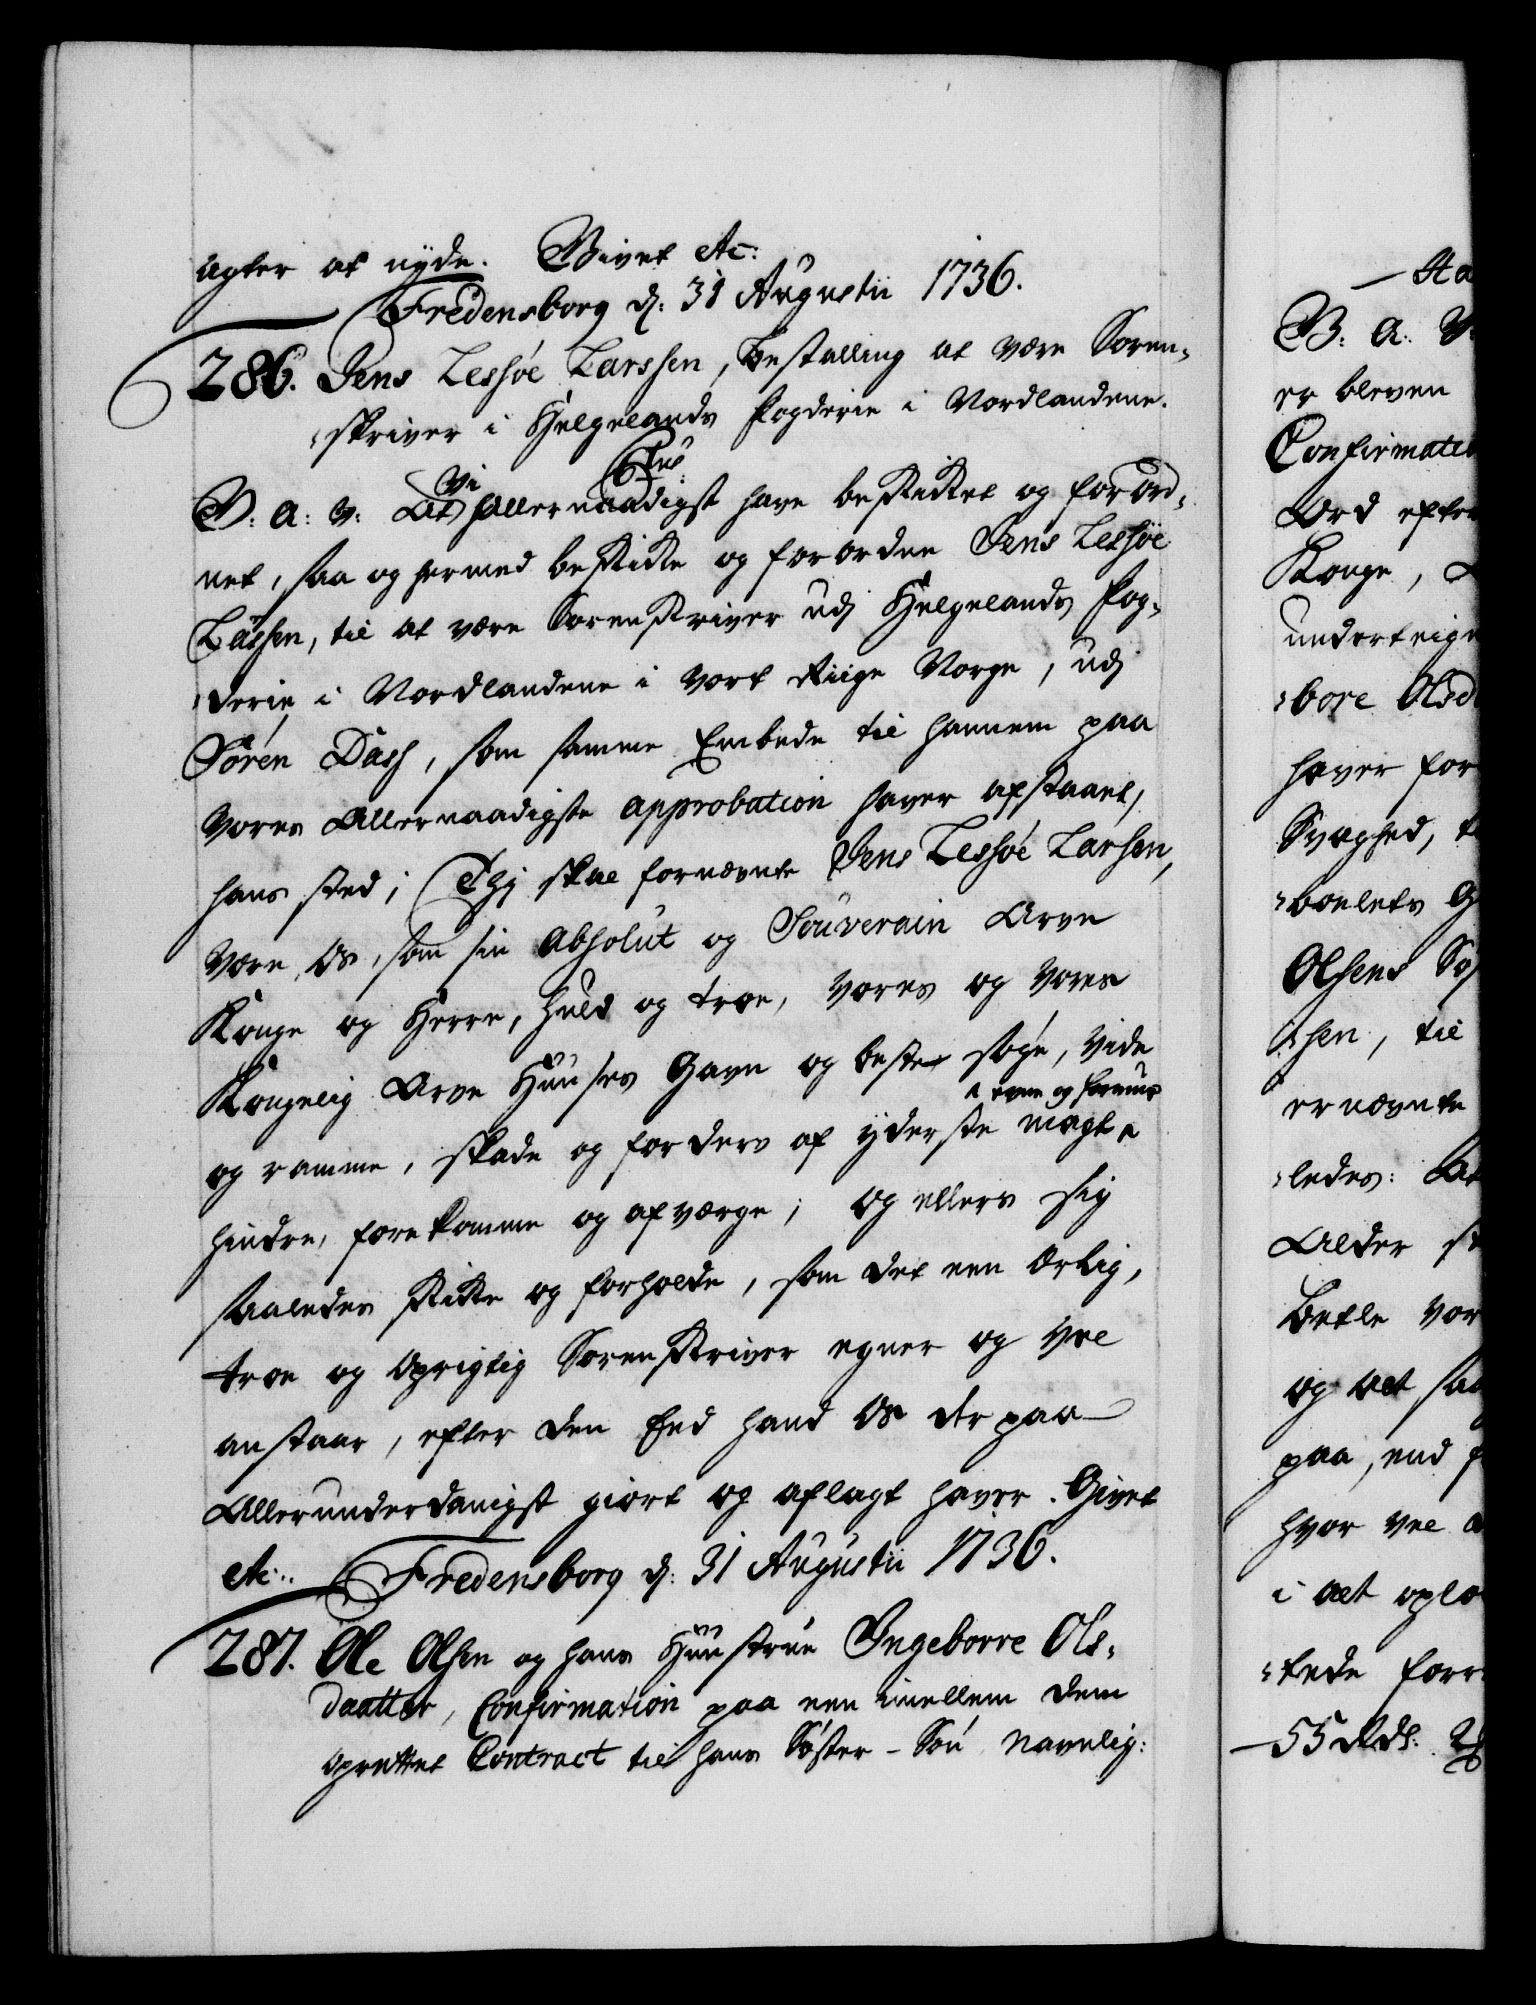 agter at nyde. Givet etc:
Fredensborg d: 31 Augustii 1736.
286. Jens Lessøe Larssen, Bestalling at være Soren-
skriver i Helgelands Fogderie i Nordlandene.
G: a: v: At Vi Allernaadigst have beskikket og forord-
net, saa og hermed beskikke og forordne Jens Lessøe
Lassen, til at være Sorenskriver udj Helgelands Fog-
derie i Nordlandene i vort Riige Norge, udj
Sören Dass, som samme Embede til hannem paa
vores Allernaadigste approbation haver afstaaet,
hans sted; Thj skal fornævnte Jens Lessøe Larsen,
være Os, som sin Absolut og Souverain Arve
Konge og Herre, huld og troe, vores og vores
Kongelig Arve Huuses Gavn og beste søge, vide
og ramme, skade og forderv af yderste magt
hindre, forekomme og afværge; og ellers sig
saaledes skikke og forholde, som det een ærlig,
troe og oprigtig Sorenskriver egner og vel
anstaar, efter den Eed hand Os derpaa
Allerunderdanigst giort og aflagt haver. Givet
etc:. Fredensborg d: 31 Augustii 1736.
287. Ole Olsen og hans Huustrue Ingeborre Ols-
daatter, Confirmation paa een imellem dem
oprettet Contract til hans Søster-Søn navnlig:
G: a: v:
er bleven
Confirmatio
Ord efter
Konge,
underteign
bore Olsd
haver for
Svaghed,
boelets
Olsens
sen, til
ernævnte
ledes: At
Alder
Betle vor
og at saa
paa, end
hvor vel
i at opla
tede
55 Rdl: